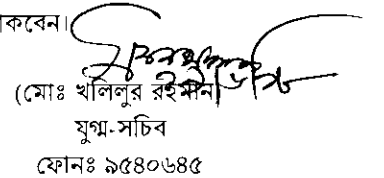 কবেন।
(মোঃ খলিলুর রহমান)
যুগ্ম-সচিব
ফোনঃ ৯৫৪০৬৪৫